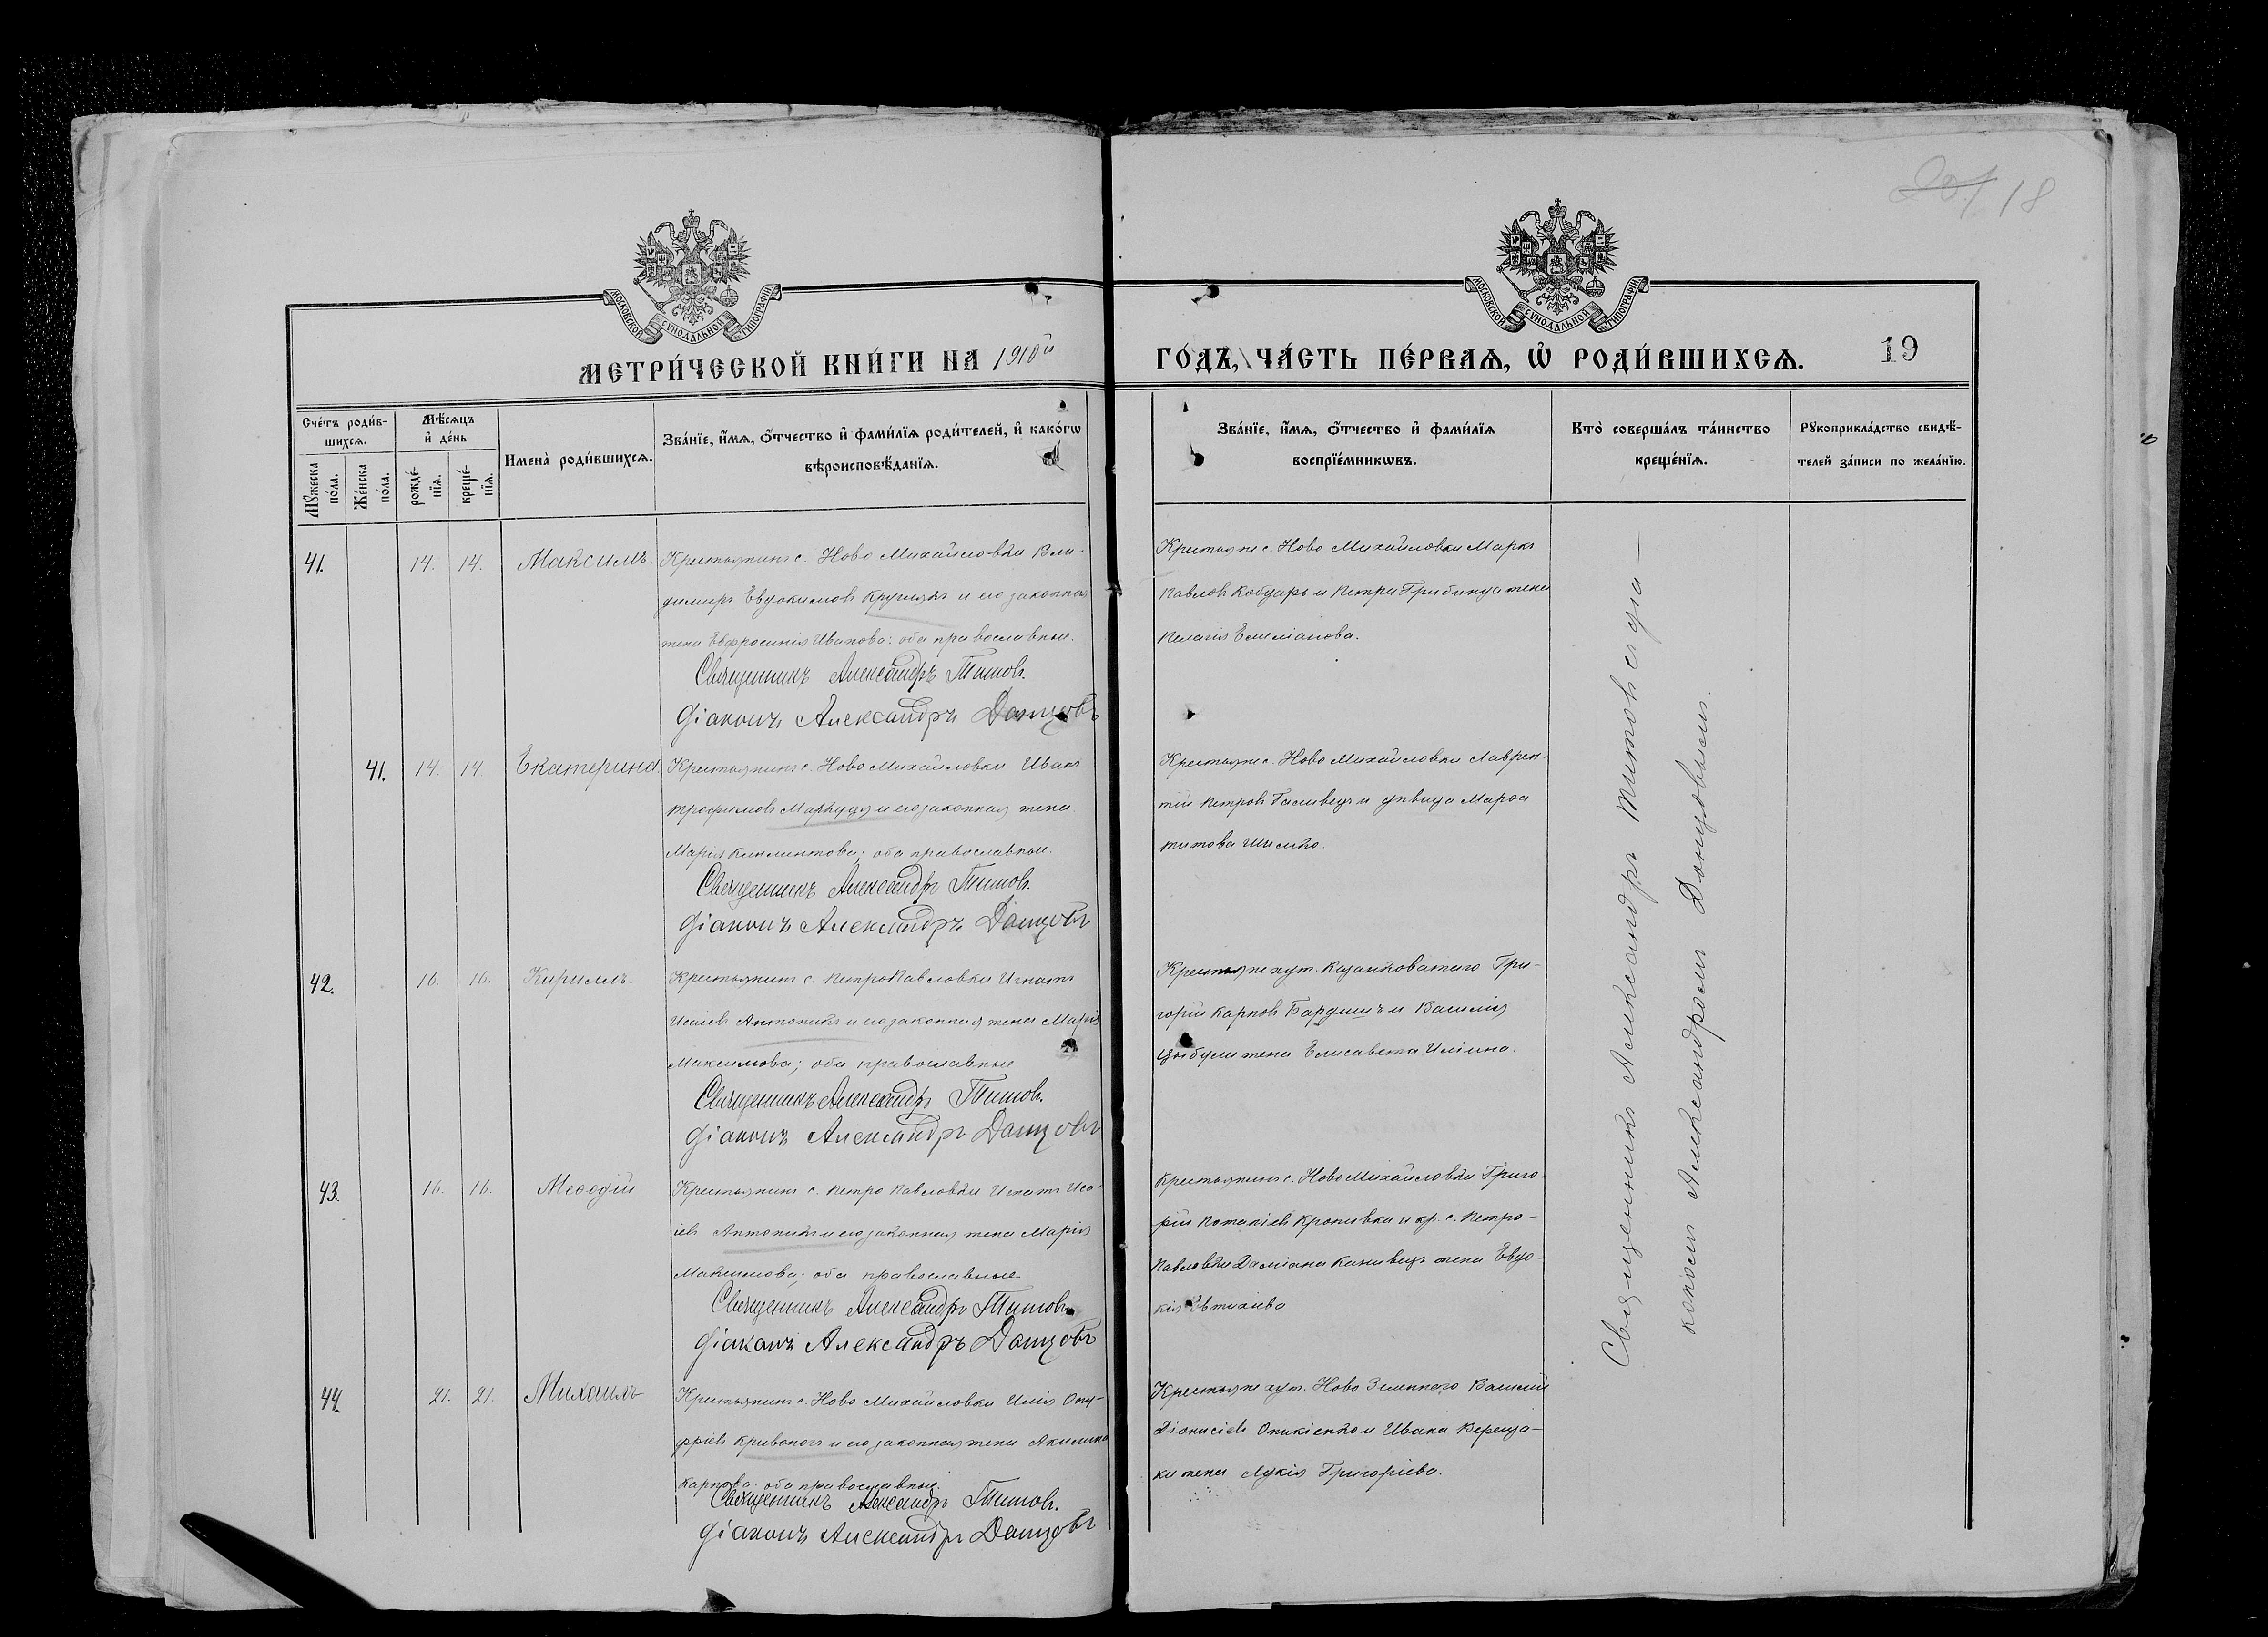 18
МОСКОВСКОЙ СѴНОДАЛЬНОЙ ТИПОГРАФІИ
МОСКОВСКОЙ СѴНОДАЛЬНОЙ ТИПОГРАФІИ
МЕТРИ́ЧЕСКОЙ КНИ́ГИ НА 1910й ГО́ДЪ, ЧА́СТЬ ПЕ́РВАЯ, Ѽ РОДИ́ВШИХСЯ. 19
Сче́тъ роди́в-
шихся.
Мѣ́сяцъ
и҆ де́нь
Мꙋ́жеска по́ла.
Же́нска по́ла.
рожде́-нїя.
креще́-нїя.
Имена̀ роди́вшихся.
Зва́нїе, и҆́мя, ѻ҆́тчество и҆ фами́лїя роди́телей, и҆ како́гѡ
вѣроисповѣ́данїя.
Зва́нїе, и҆́мя, ѻ҆́тчество и҆ фами́лїя
воспрїе́мникѡвъ.
Кто̀ соверша́лъ та́инство
креще́нїя.
Рꙋкоприкла́дство свидѣ́-
телей за́писи по жела́нїю.
41. 14. 14. Максимъ. Крестьянинъ с. Ново Михайловки Вла-
димиръ Евдокимовъ Кругликъ и его законная
жена Евфросинія Иванова: оба православные.
Священникъ Александръ Титовъ.
Діаконъ Александръ Донцовъ
Крестьяне с. Ново Михайловки Маркъ
Павловъ Кобцарь и Петра жена
Пелагія Емеліанова.
41. 14. 14. Екатерина. Крестьянинъ с. Ново Михайловки Иванъ
Трофимовъ и его законная жена
Марія Климентова; оба православные.
Священникъ Александръ Титовъ.
Діаконъ Александръ Донцовъ
Крестьяне с. Ново Михайловки Лаврен-
тій Петровъ и дѣвица Марѳа
Титова
42. 16. 16. Кириллъ. Крестьянинъ с. ПетроПавловки Игнатъ
Исаіевъ Антоникъ и его законная жена Марія
Максимова; оба православные
Священникъ Александръ Титовъ.
Діаконъ Александръ Донцовъ
Крестьяне хут. Казанковатаго Гри-
горій Карповъ и Василія
Цыбули жена Елисавета Иліина.
43. 16. 16. Меѳодій Крестьянинъ с. Петро Павловки Игнатъ Иса-
іевъ Антоникъ и его законная жена Марія
Максимова; оба православные
Священникъ Александръ Титовъ.
Діаконъ Александръ Донцовъ
Крестьянинъ с. Ново Михайловки Григо-
рій Кропивка и кр. с. Петро-
Павловки Даміана жена Евдо-
кія
44. 21. 21. Михаилъ Крестьянинъ с. Ново Михайловки Илія Ону-
фріевъ Кривоногъ и его законная жена Акилина
Карпова: оба православные.
Священникъ Александръ Титовъ.
Діаконъ Александръ Донцовъ
Крестьяне хут. Ново Василій
Діонисіевъ и Ивана Вереща-
ки жена Лукія Григоріева.
Священникъ Александръ Титовъ съ діа-
кономъ Александромъ Донцовымъ.